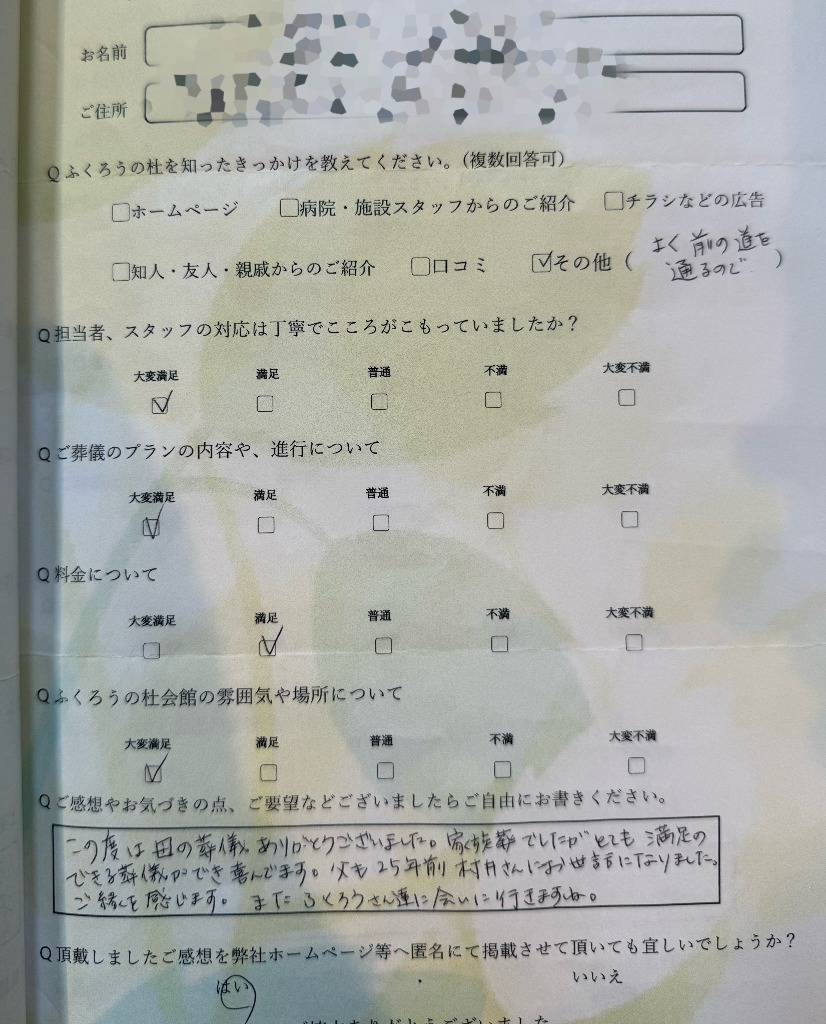 お名前
ご住所
Qふくろうの杜を知ったきっかけを教えてください。（複数回答可）
□ホームページ □病院・施設スタッフからのご紹介 □チラシなどの広告
□知人・友人・親戚からのご紹介 □口コミ ☑その他（よく前の道を
通るので）
Q担当者、スタッフの対応は丁寧でこころがこもっていましたか？
大変満足 満足 普通 不満 大変不満
☑ □ □ □ □
Qご葬儀のプランの内容や、進行について
大変満足 満足 普通 不満 大変不満
☑ □ □ □ □
Q料金について
大変満足 満足 普通 不満 大変不満
□ ☑ □ □ □
Qふくろうの杜会館の雰囲気や場所について
大変満足 満足 普通 不満 大変不満
☑ □ □ □ □
Qご感想やお気づきの点、ご要望などございましたらご自由にお書きください。
この度は母の葬儀、ありがとうございました。家族葬でしたがとても満足の
できる葬儀ができ喜んでます。父も25年前村井さんにお世話になりました。
ご縁を感じます。またふくろうさん達に会いに行きますね。
Q頂戴しましたご感想を弊社ホームページ等へ匿名にて掲載させて頂いても宜しいでしょうか？
はい ・ いいえ
ありがとうございました